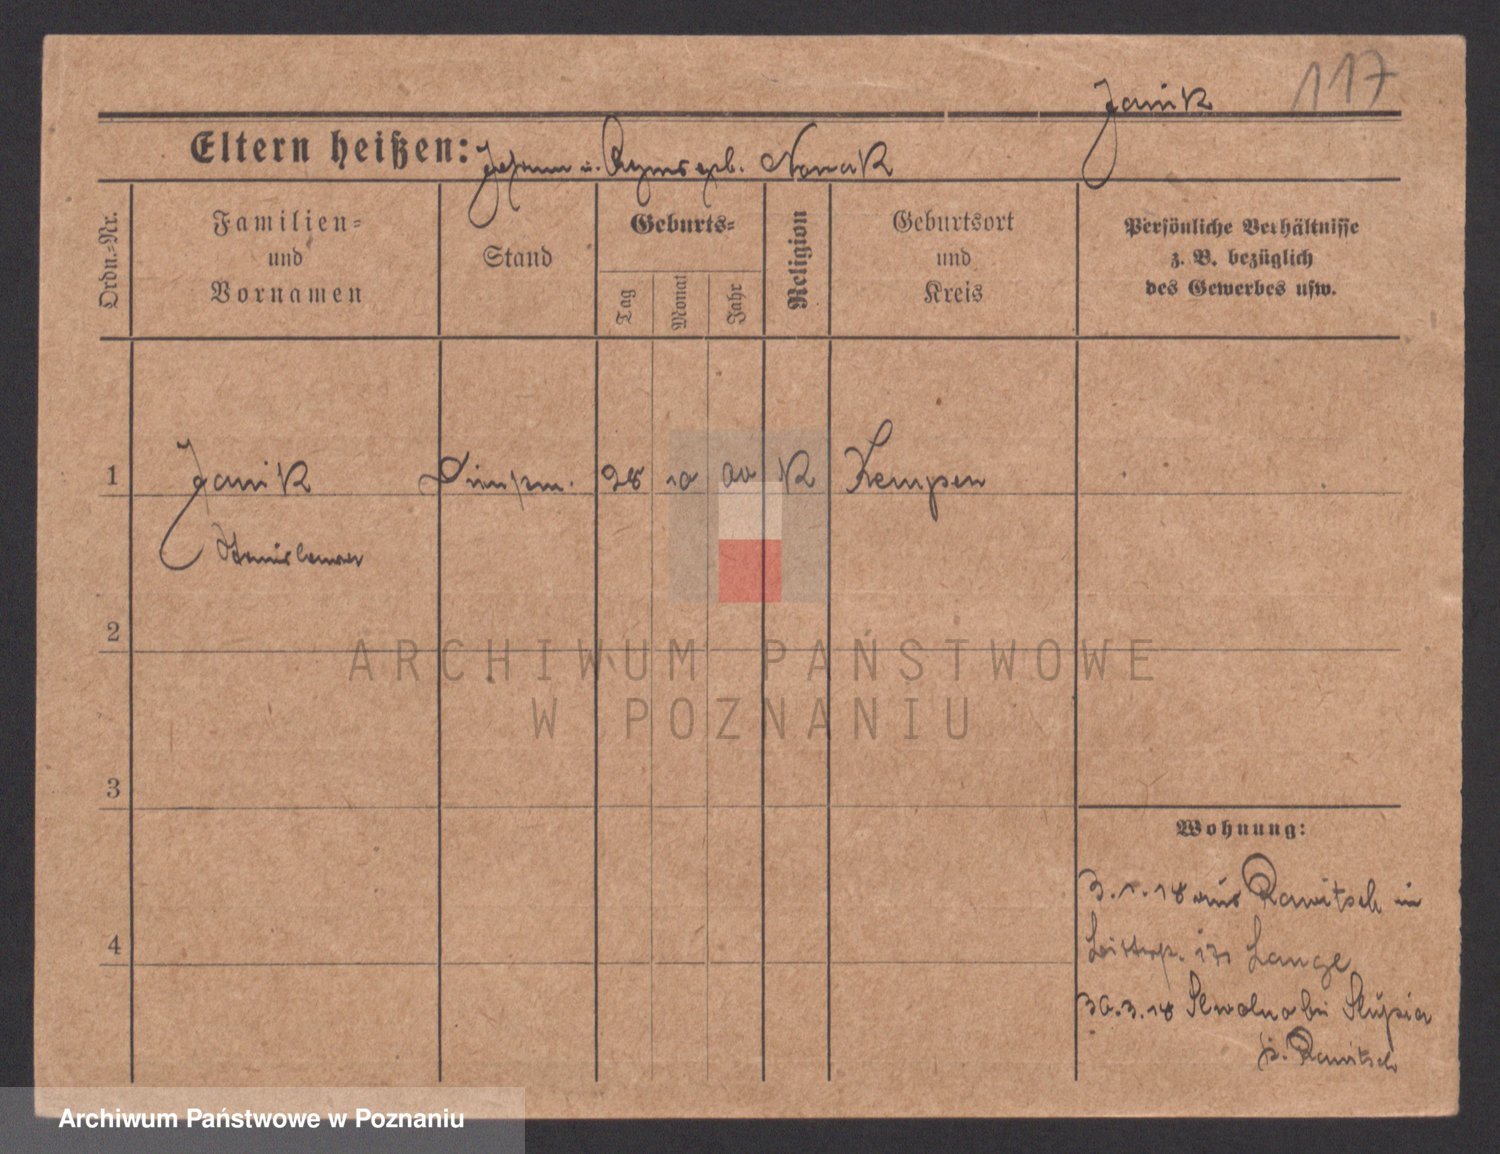 117
Janik
Eltern heißen: Johann u. Agnes geb. Nowak
Ordn.-Nr.
Familien-
und
Vornamen
Stand
Geburts-
Tag
Monat
Jahr
Religion
Geburtsort
und
Kreis
Persönliche Verhältnisse
z. B. bezüglich
des Gewerbes usw.
1 Janik 28 10 00 K Kempen
Stanislawa
2
3
4
Wohnung:
3.1.18 aus Rawitsch in
171 Lange
30.3.18 bei Slupia
Rawitsch
ARCHIWUM PAŃSTWOWE
W POZNANIU
Archiwum Państwowe w Poznaniu